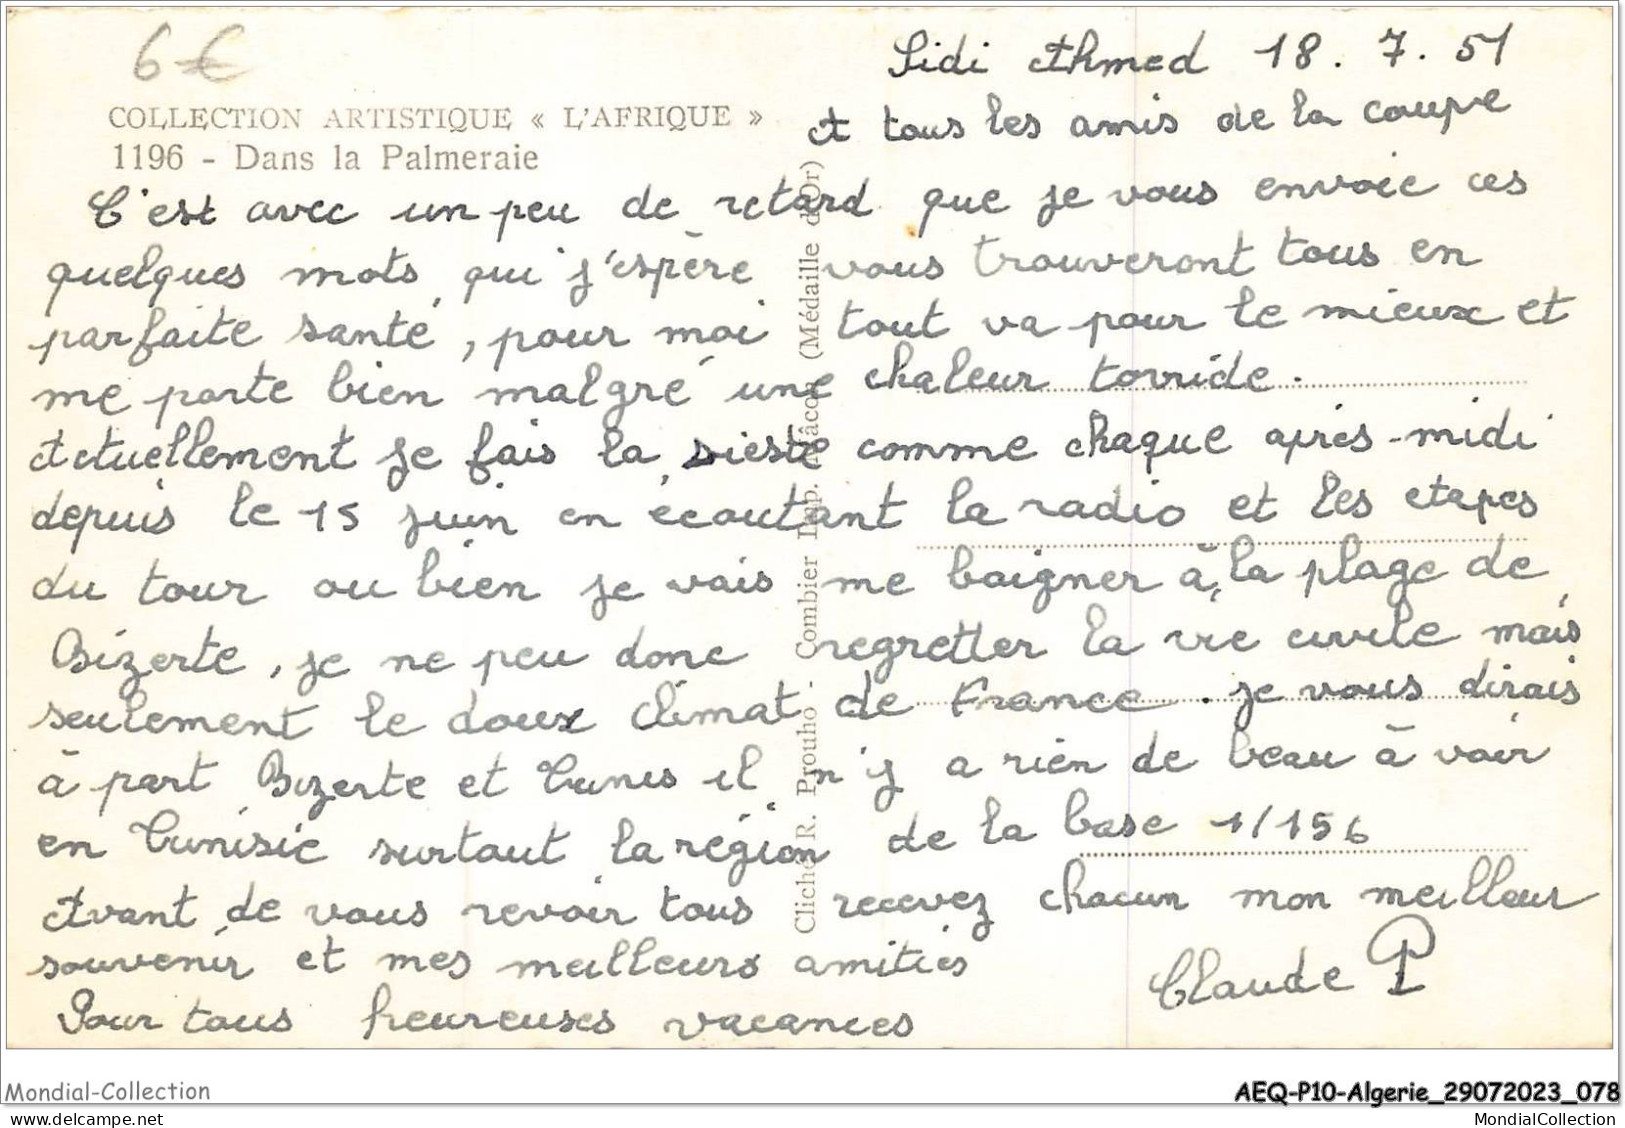 6€
Sidi Ahmed 18.7.51
COLLECTION ARTISTIQUE « L'AFRIQUE »
A tous les amis de la coupe
1196 - Dans la Palmeraie
C'est avec un peu de retard que je vous envoie ces
quelques mots qui j'espère vous trouveront tous en
parfaite santé, pour moi tout va pour le mieux et
me porte bien malgré une chaleur torride.
Actuellement je fais la sieste comme chaque après-midi
depuis le 15 juin en écoutant la radio et les etapes
du tour ou bien je vais me baigner à la plage de
Bizerte, je ne peu donc regretter la vie civile mais
seulement le doux climat de France. je vous dirais
à part Bizerte et Tunis il n'y a rien de beau à voir
en Tunisie surtout la région de la base 1/156
Avant de vous revoir tous recevez chacun mon meilleur
souvenir et mes meilleurs amitiés
Claude P
Pour tous heureuses vacances
Cliché R. Prouho - Combier Imp. Mâcon (Médaille d'Or)
Mondial-Collection
AEQ-P10-Algerie_29072023_078
delcampe.net
MondialCollection